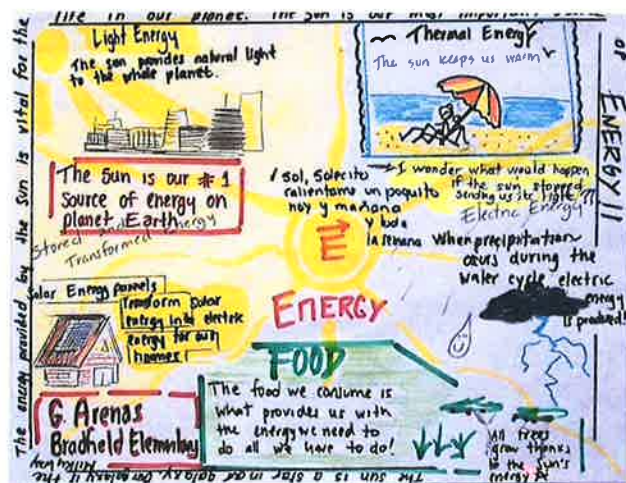 life in our planet. The sun is our most important source
of ENERGY!!
The energy provided by the sun is vital for the
Light Energy
The sun provides natural light
to the whole planet.
Thermal Energy
The sun keeps us warm
The Sun is our #1
source of energy on
planet Earth
Stored and Energy
Transformed
sol, solecito
calientame un poquito
hoy y mañana
y toda
la semana
I wonder what would happen
if the sun stopped
sending us its light??
Electric Energy
When precipitation
occurs during the
water cycle, electric
energy
is produced!
E
ENERGY
Solar Energy pannels
Transform solar
energy into electric
energy for our
homes!
FOOD
The food we consume is
what provides us with
the energy we need to
do all we have to do!
G. Arenas
Bradfield Elementary
All trees
grow thanks
to the sun's
energy
The sun is a star in our galaxy. Our galaxy is the
Milky Way